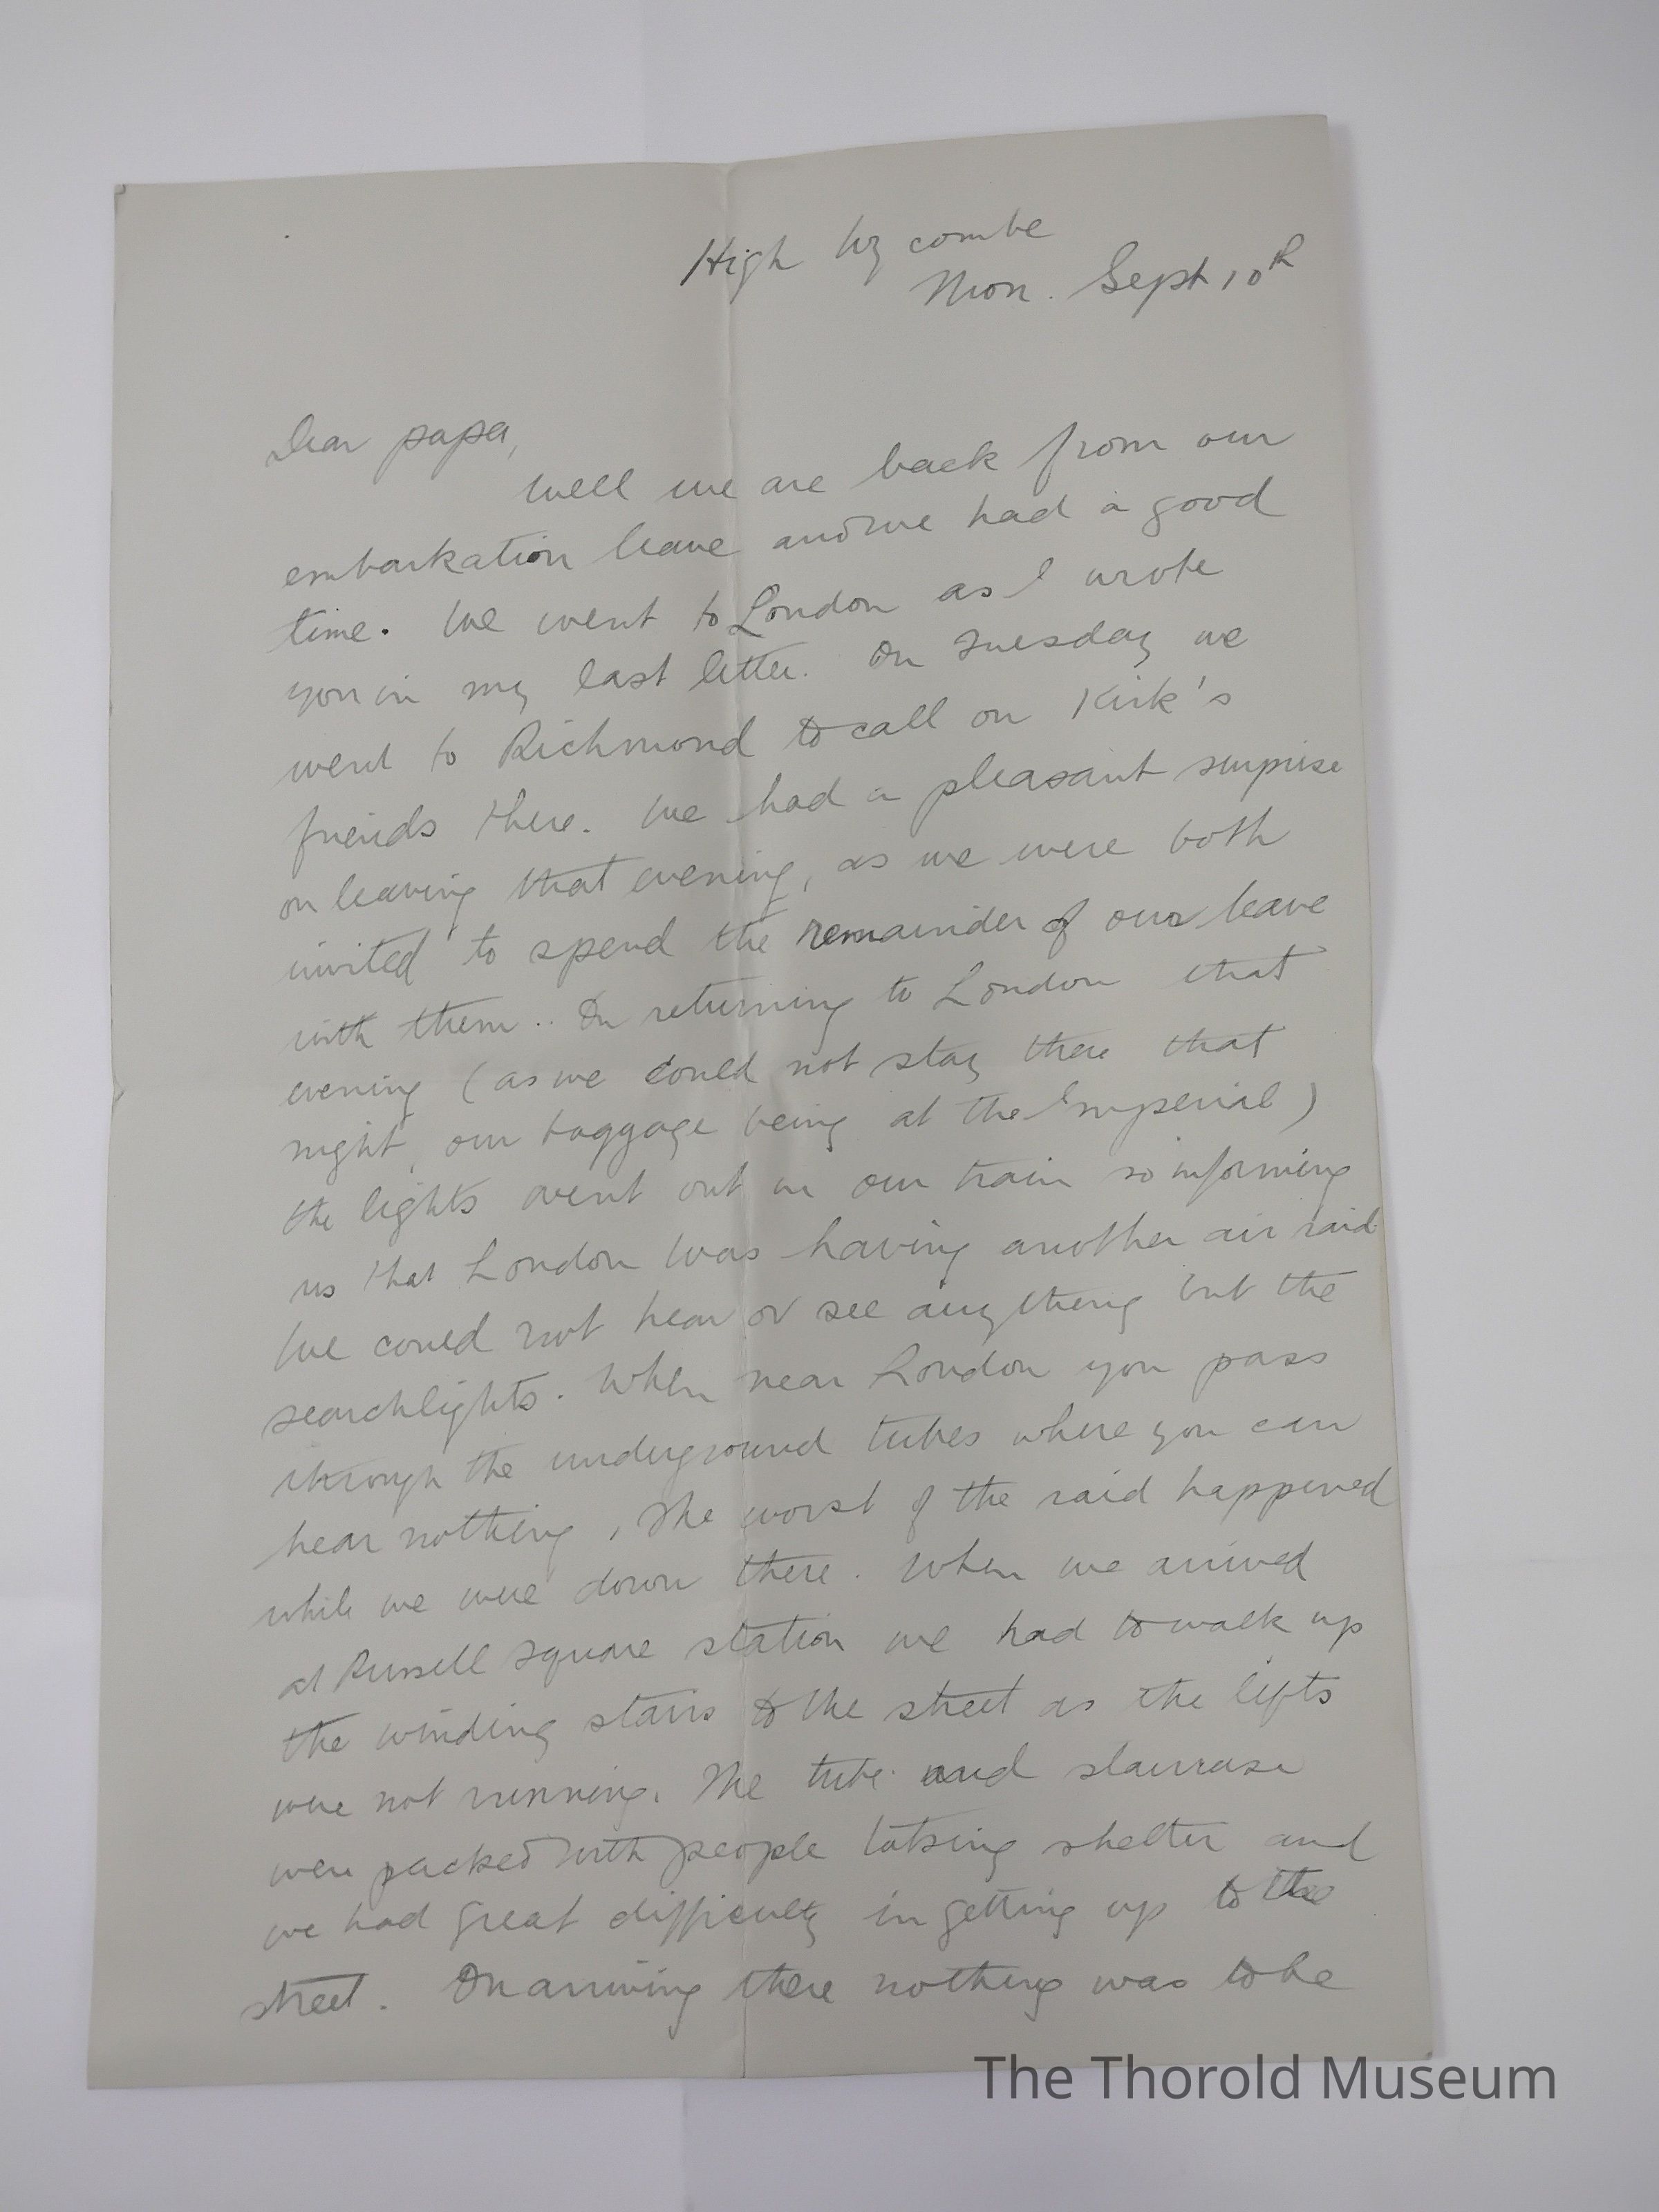 High Wycombe
Mon. Sept 10th
Dear papa,
Well we are back from our
embarkation leave and we had a good
time. We went to London as I wrote
you in my last letter. On Tuesday we
went to Richmond to call on Kirk's
friends there. We had a pleasant surprise
on leaving that evening, as we were both
invited to spend the remainder of our leave
with them.. On returning to London that
evening (as we could not stay there that
night, our baggage being at the Imperial)
the lights went out in our train so informing
us that London was having another air raid
We could not hear or see anything but the
searchlights. When near London you pass
through the underground tubes where you can
hear nothing, The worst of the raid happened
while we were down there. When we arrived
at Russell Square station we had to walk up
the winding stairs to the street as the lifts
were not running. The tube and staircase
were packed with people taking shelter and
we had great difficulty in getting up to the
street. On arriving there nothing was to be
The Thorold Museum